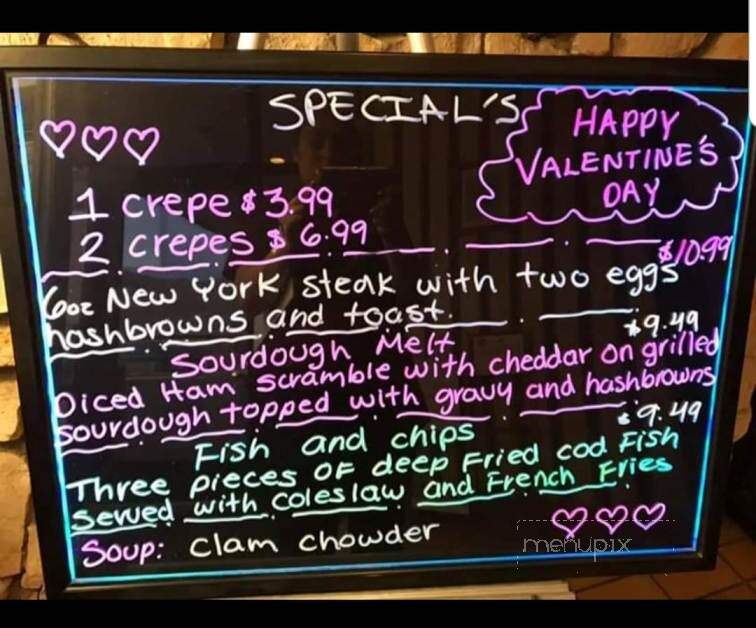 SPECIAL'S
HAPPY
VALENTINE'S
DAY
1 crepe $3.99
2 crepes $ 6.99
$10.99
6oz New York steak with two eggs
hashbrowns and toast.
$9.49
Sourdough Melt
Diced Ham scramble with cheddar on grilled
sourdough topped with gravy and hashbrowns
$9.49
Fish and chips
Three pieces of deep fried cod Fish
Served with coleslaw and French Fries
Soup: clam chowder
menupix